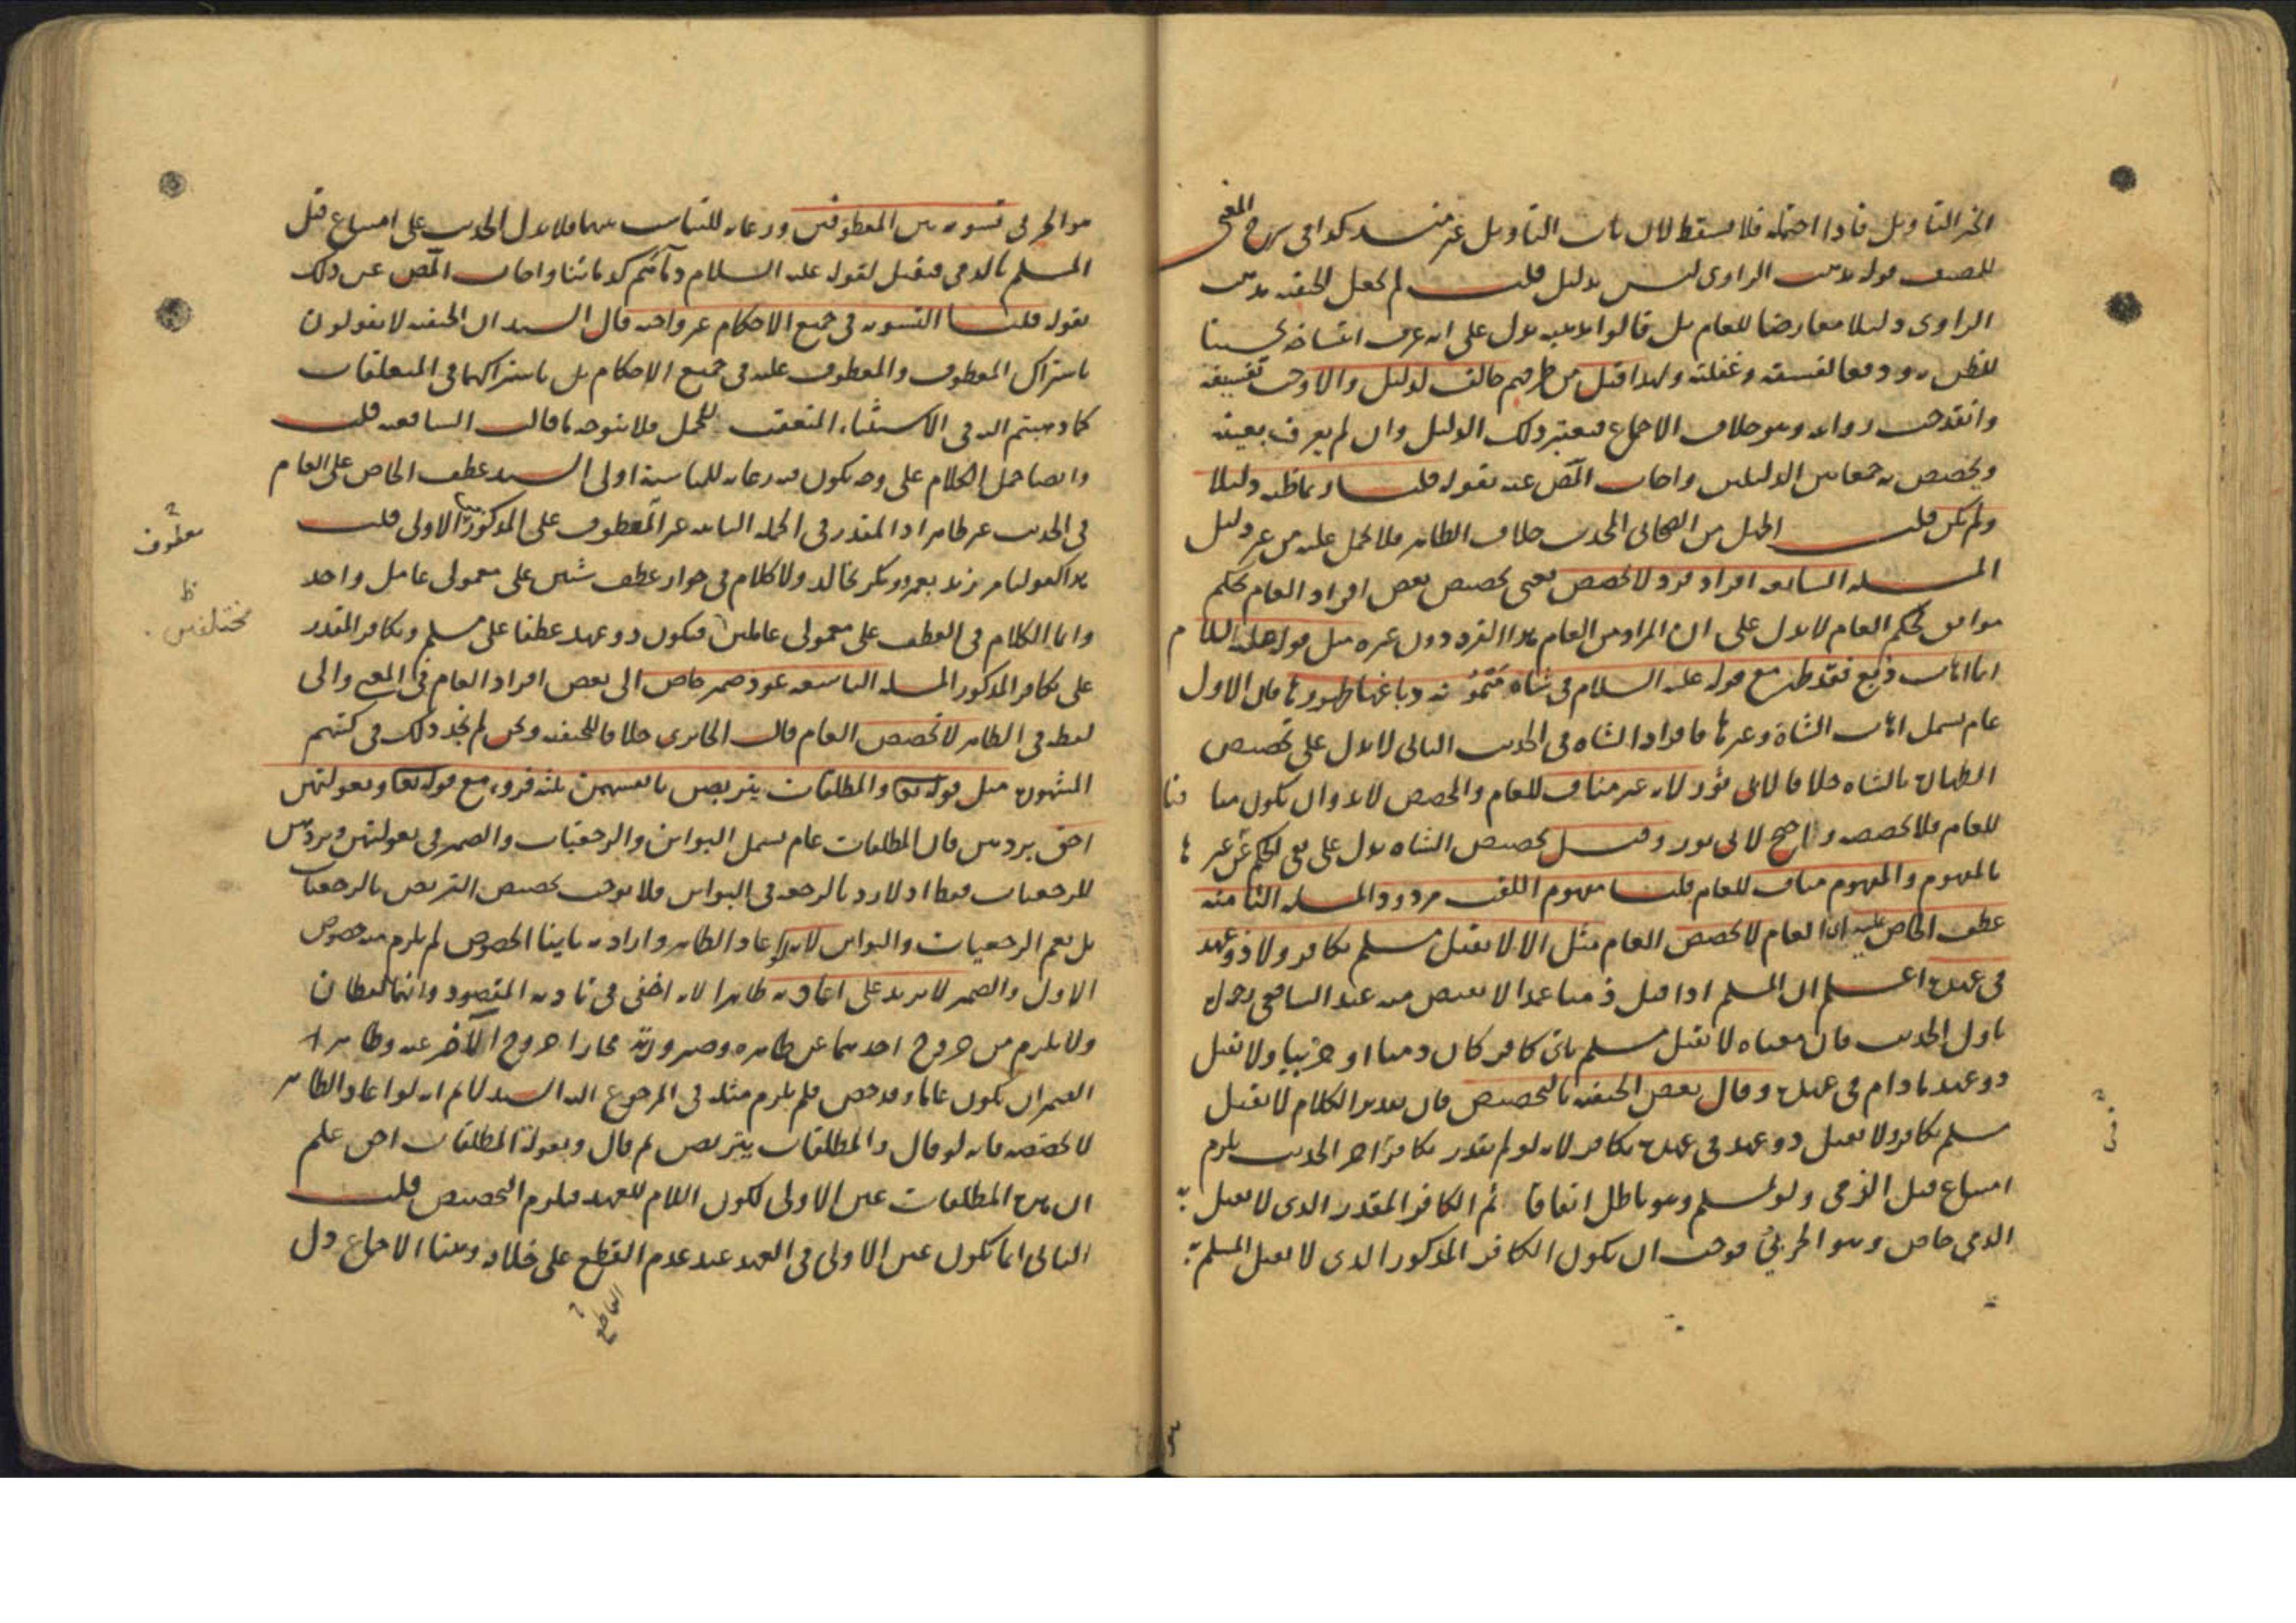 الخبر التاويل فاذا احتمله فلا يسقط لان باب التاويل غير منسد كذا في شرح المغني
للمصنف قوله مذهب الراوي ليس بدليل قلت لم يجعل الحنفيه مذهب
الراوى دليلا معارضا للعام بل قالوا مذهبه يدل على انه عرف انتساخه تحسينا
للظن به ودفعا لفسقه وغفلته ولهذا قيل من طرفهم خالف لدليل والا وجب تفسيقه
وانقدحت روايته وهو خلاف الاجماع فيعتبر ذلك الدليل وان لم يعرف بعينه
ويخصص به جمعا بين الدليلين واجاب المص عنه بقوله قلنا ربما ظنه دليلا
ولم يكن قلت الجهل من الصحابى الحديث خلاف الظاهر فلا يحمل عليه من غير دليل
المسله السابعه افراد فرد لا يخصص يعنى تخصيص بعض افراد العام بحكم
موافق لحكم العام لا يدل على ان المراد من العام هذا الفرد دون غيره مثل قوله عليه السلام
ايما اهاب دبغ فقد طهر مع قوله عليه السلام في شاه ميمونه دباغها طهورها فان الاول
عام يشمل اهاب الشاة وغيرها فافراد الشاه في الحديث الثانى لا يدل على تخصيص
الطهاره بالشاه خلافا لابى ثور لانه غير مناف للعام والمخصص لا بد وان يكون منا فيا
للعام فلا يخصصه واحتج لابى ثور وقيل تخصيص الشاه يدل على نفى الحكم عن غيرها
بالمفهوم والمفهوم مناف للعام قلنا مفهوم اللقب مردود المسله الثامنه
عطف الخاص عليه اى العام لا يخصص العام مثل الا لا يقتل مسلم بكافر ولا ذو عهد
في عهده اعلم ان المسلم اذا قتل ذميا عمدا لا يقتص منه عند الشافعي رحمه
باول الحديث فان معناه لا يقتل مسلم باى كافر كان ذميا او حربيا ولا يقتل
ذو عهد ما دام في عهده وقال بعض الحنفيه بالتخصيص فان تقدير الكلام لا يقتل
مسلم بكافر ولا يقتل ذو عهد في عهده بكافر لانه لو لم يقدر بكافر آخر الحديث يلزم
امتناع قتل الذمى ولو لمسلم وهو باطل اتفاقا ثم الكافر المقدر الذى لا يقتل به
الذمي خاص وهو الحربي فوجب ان يكون الكافر المذكور الذى لا يقتل المسلم به
هو الحربي تسويه بين المعطوفين ورعايه للتناسب بينهما فلا يدل الحديث على امتناع قتل
المسلم بالذمى فيقتل لقوله عليه السلام دمائهم كدمائنا واجاب المص عن ذلك
بقوله قلنا التسويه في جميع الاحكام غير واجبه قال السيد ان الحنفيه لا يقولون
باشتراك المعطوف والمعطوف عليه في جميع الاحكام بل باشتراكهما في المتعلقات
كما ذهبتم اليه في الاستثناء المتعقب للجمل فلا يتوجه ما قالت الشافعيه قلت
وايضا حمل الكلام على وجه يكون فيه رعايه للمناسبة اولى السيد عطف الخاص على العام
في الحديث غير ظاهر اذ المقدر في الجمله الثانيه غير المعطوف على المذكور في الاولى قلت
معطوف
هذا كقولنا مر زيد بعمرو وبكر بخالد ولا كلام في جواز عطف شيئين على معمولى عامل واحد
وانما الكلام في العطف على معمولى عاملين فيكون ذو عهد عطفا على مسلم وبكافر المقدر
مختلفين ظ
على بكافر المذكور المسله التاسعه عود ضمير خاص الى بعض افراد العام في المعنى والى
لفظه في الظاهر لا يخصص العام قالت الجابردى خلافا للحنفيه ونحن لم نجد ذلك في كتبهم
المشهوره مثل قوله تعالى والمطلقات يتربصن بانفسهن ثلثه قروء مع قوله تعالى وبعولتهن
احق بردهن فان المطلقات عام يشمل البواين والرجعيات والضمير في بعولتهن وبردهن
للرجعيات فقط اذ لا رد بالرجعه في البواين فلا يوجب تخصيص التربص بالرجعيات
بل يعم الرجعيات والبواين لانه لو اعاد الظاهر واراد به ثانيا الخصوص لم يلزم منه خصوص
الاول والضمير لا يزيد على اعادته ظاهرا لانه اخفى في تاديه المقصود وانهما لفظان
ولا يلزم من خروج احدهما عن ظاهره وصيرورته مجازا خروج الآخر عنه وظاهر
الضمير ان يكون عاما وقد خص فلم يلزم مثله في المرجوع اليه السيد لا نم انه لو اعاد الظاهر
لا يخصصه فانه لو قال والمطلقات يتربصن ثم قال وبعولة المطلقات احق علم
ان هذه المطلقات عين الاولى لكون اللام للعهد فيلزم التخصيص قلت
الثانى انما تكون عين الاولى في العهد عند عدم القطع على خلافه وهنا الاجماع دل
القاطع